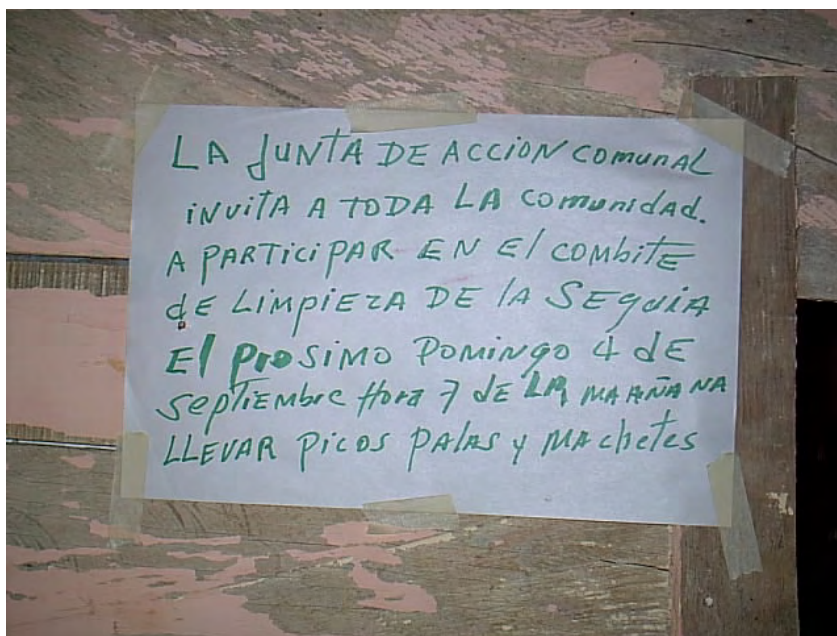 LA JUNTA DE ACCION COMUNAL
INVITA A TODA LA COMUNIDAD.
A PARTICIPAR EN El COMBITE
dE LIMPIEZA DE lA SEQUIA
El PROSIMO DOMINGO 4 dE
SEPTIEMBRE Hora 7 dE LA MAÑANA
LLEVAR PICOS PALAS y MAchetes